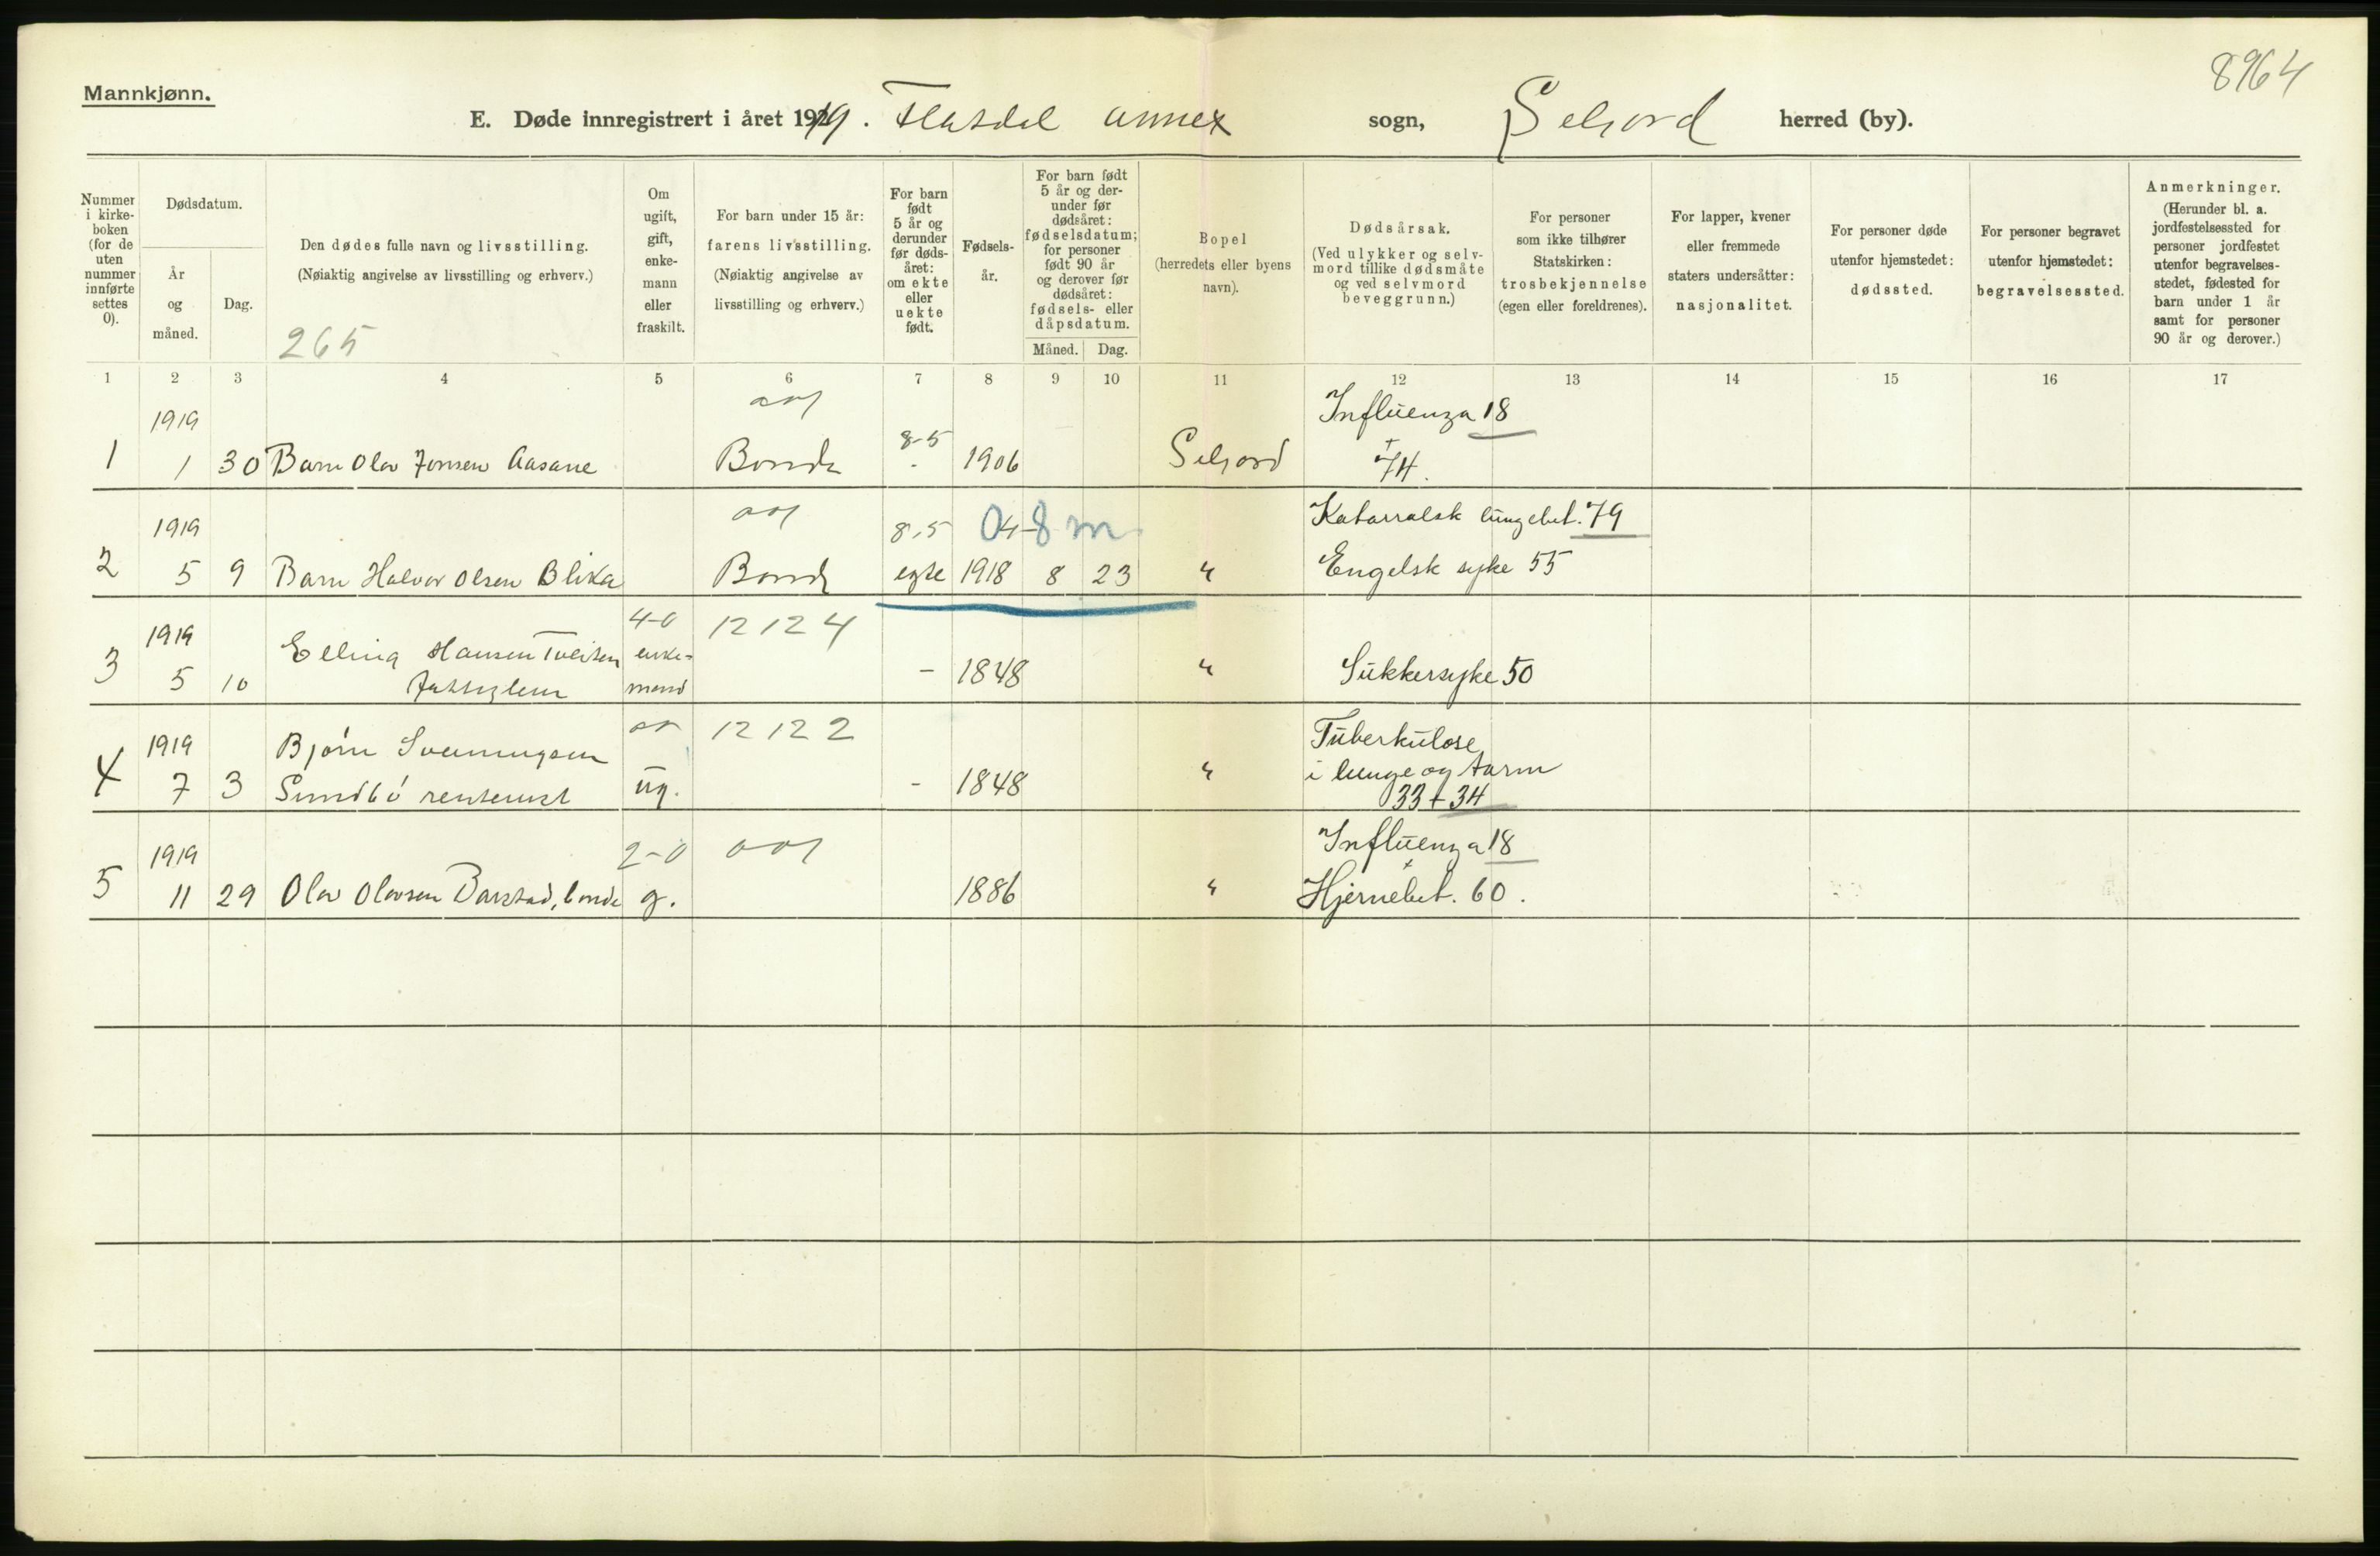 8964
Mannkjønn.
E. Døde innregistrert i året 1919. Flatdal annex sogn, Seljord herred (by).
Nummer i kirkeboken (for de uten nummer innførte settes 0).
Dødsdatum.
År og måned.
Dag.
Den dødes fulle navn og livsstilling.
(Nøiaktig angivelse av livsstilling og erhverv.)
265
Om ugift, gift, enkemann eller fraskilt.
For barn under 15 år: farens livsstilling.
(Nøiaktig angivelse av livsstilling og erhverv.)
For barn født 5 år og derunder før dødsåret: om ekte eller uekte født.
Fødselsår.
For barn født 5 år og derunder før dødsåret: fødselsdatum; for personer født 90 år og derover før dødsåret: fødsels- eller dåpsdatum.
Måned. Dag.
Bopel
(herredets eller byens navn).
Dødsårsak.
(Ved ulykker og selvmord tillike dødsmåte og ved selvmord beveggrunn.)
For personer som ikke tilhører Statskirken: trosbekjennelse (egen eller foreldrenes).
For lapper, kvener eller fremmede staters undersåtter: nasjonalitet.
For personer døde utenfor hjemstedet: dødssted.
For personer begravet utenfor hjemstedet: begravelsessted.
Anmerkninger.
(Herunder bl. a. jordfestelsessted for personer jordfestet utenfor begravelsesstedet, fødested for barn under 1 år samt for personer 90 år og derover.)
1 2 3 4 5 6 7 8 9 10 11 12 13 14 15 16 17
1919 Influenza 18
8-5
1 1 30 Barn Olav Jonsen Aasane Bonde - 1906 Seljord + 74.
1919 8-5 0-8 m Katarralsk lungebet. 79
2 5 9 Barn Halvor Olsen Blika Bonde egte 1918 8 23 " Engelsk syke 55
1919 4-0 12124
3 Elling Hansen Tveiten enke-
5 10 mand - 1848 " Sukkersyke 50
1919 Bjørn Sveinungsen 12122 Tuberkulose
4 7 3 Sundbö ug. - 1848 " i lunge og tarm
33 + 34
1919 2-0 Influenza 18
+
5 11 29 Olav Olavsen Barstad, bonde g. 1886 " Hjernebet. 60.